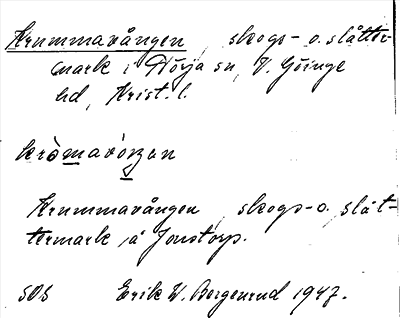 Krummavången, skogs- o. slåtter-
mark i Nörja sn, V. Göinge
hd, Krist. l.
kròmavòŋan
Krummavången, skogs- o. slåt-
termark å Jonstorp.
SOS Erik W. Bergenrud 1947.